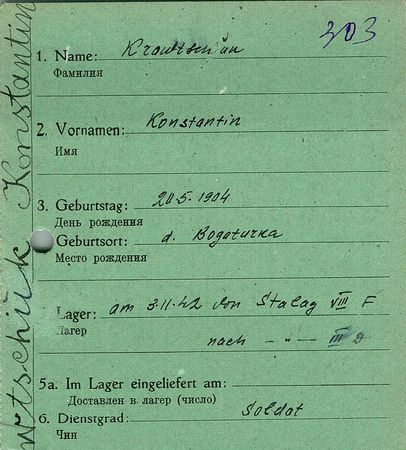 303
1. Name: Krawtschun
Фамилия
2. Vornamen: Konstantin
Имя
3. Geburtstag: 20.5.1904
День рождения
Geburtsort: d. Bogaturka
Место рождения
Lager: am 3.11.42 von Stalag VIII F
Лагер
nach - " - III D
5a. Im Lager eingeliefert am:
Доставлен в лагер (число)
6. Dienstgrad: Soldat
Чин
wtschuk Konstantin